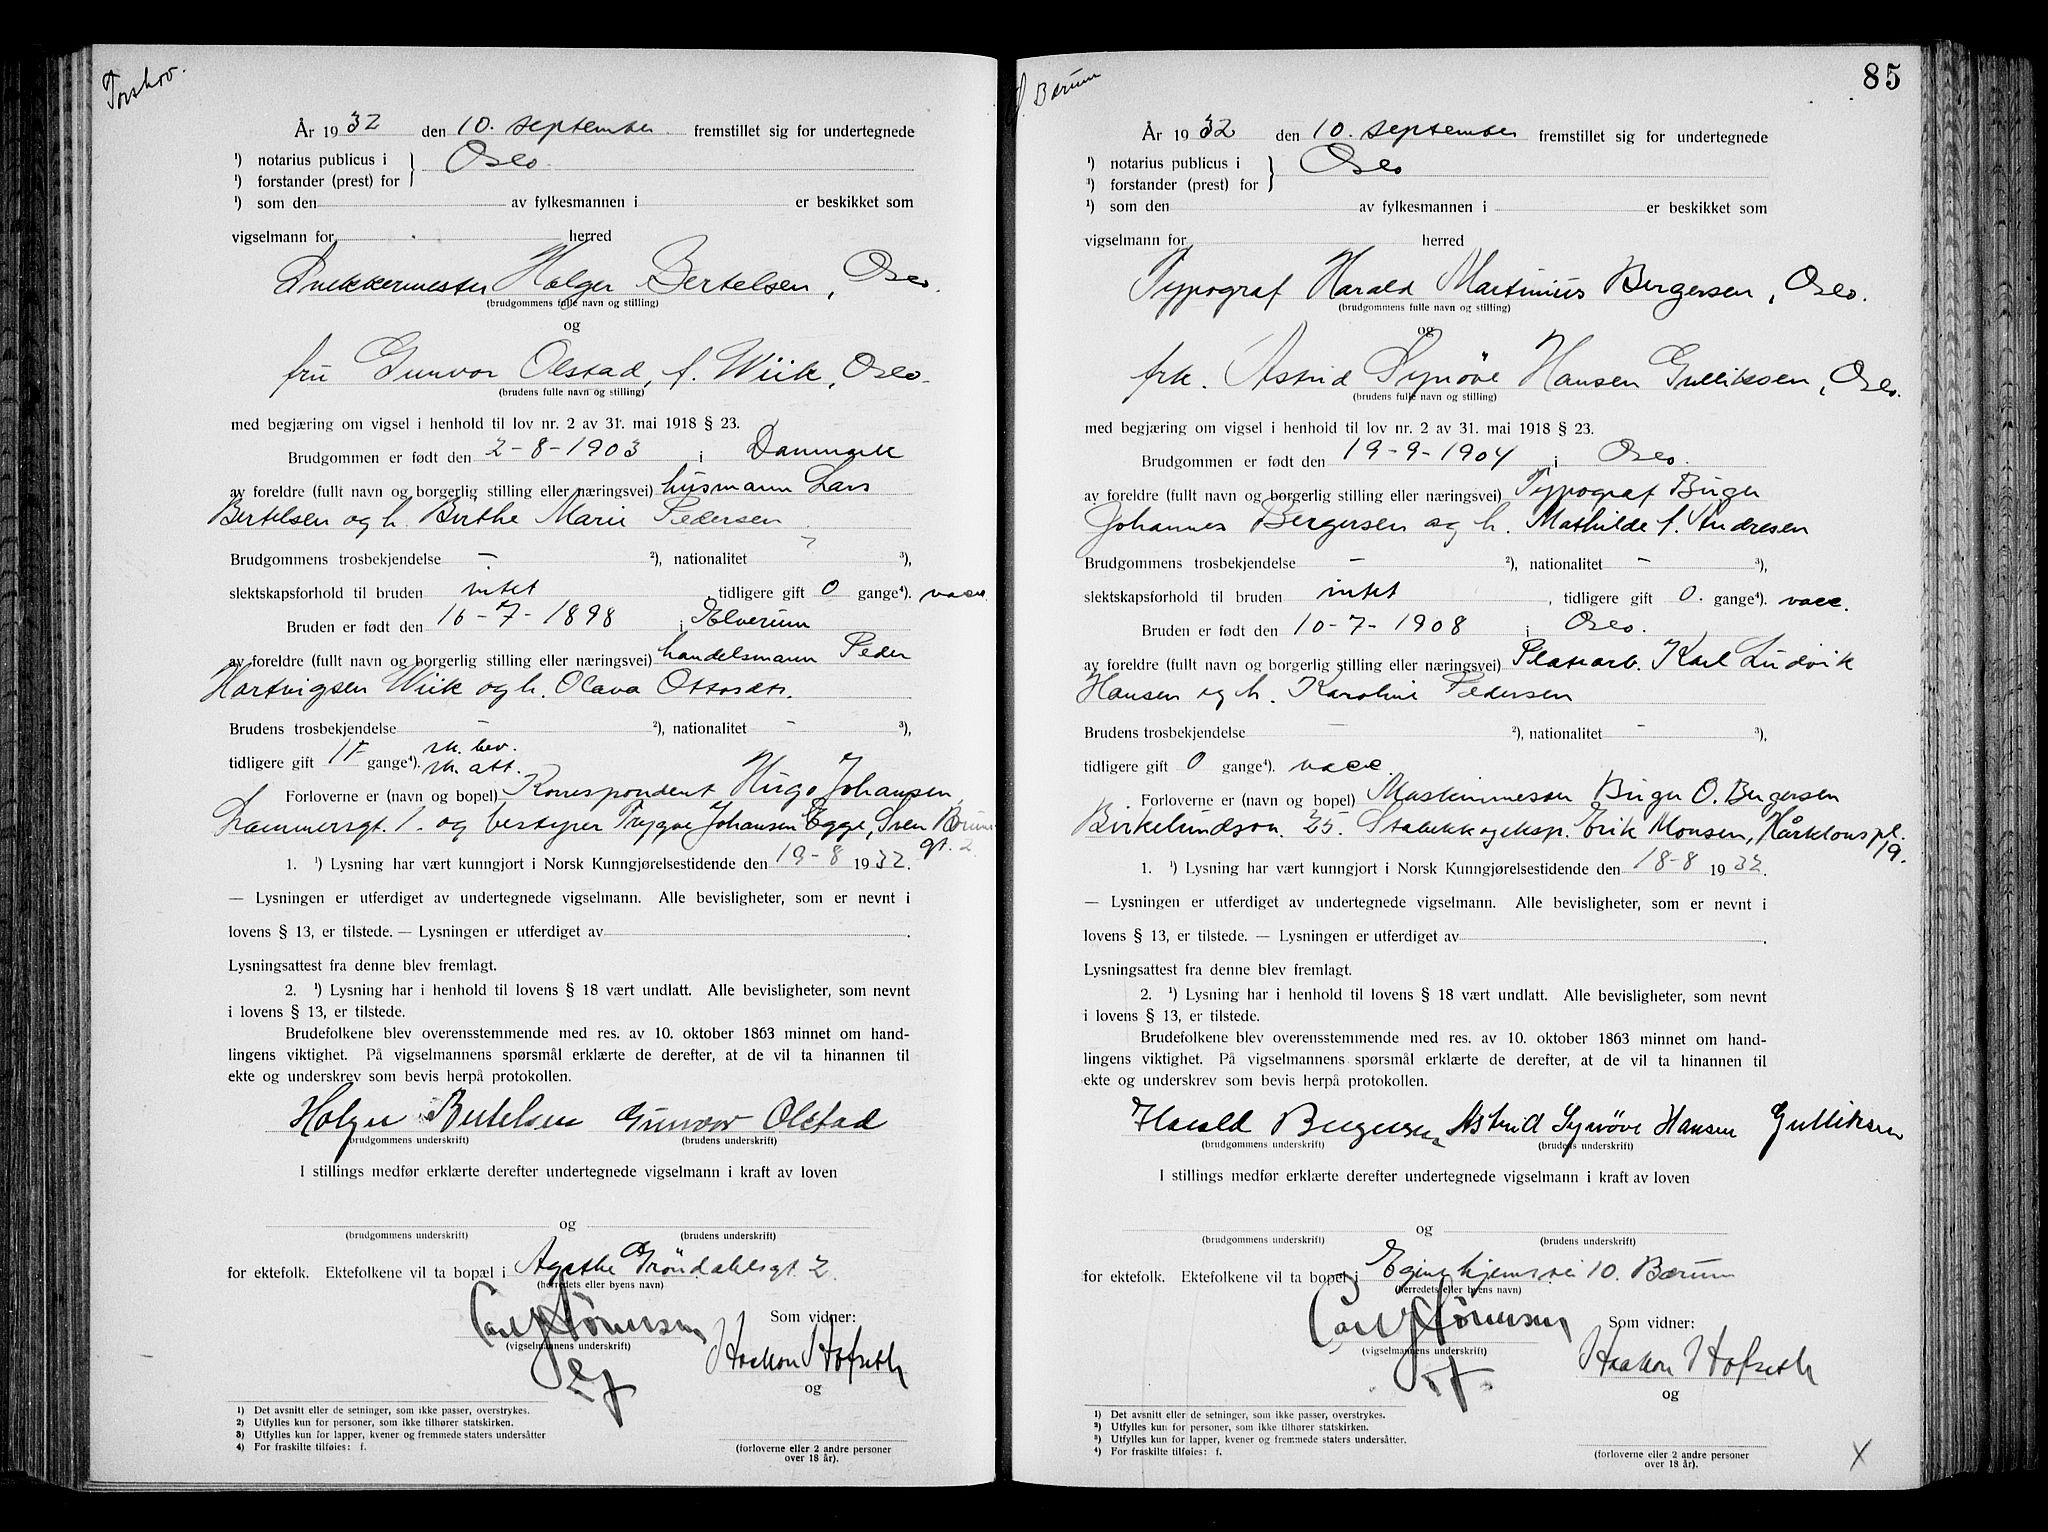 Torshov.
År 1932 den 10. september fremstillet sig for undertegnede
¹) notarius publicus i } Oslo.
¹) forstander (prest) for
¹) som den av fylkesmannen i er beskikket som
vigselmann for herred
Snekkermester Holger Bertelsen, Oslo.
(brudgommens fulle navn og stilling)
og
fru Gunvor Olstad, f. Wiik, Oslo.
(brudens fulle navn og stilling)
med begjæring om vigsel i henhold til lov nr. 2 av 31. mai 1918 § 23.
Brudgommen er født den 2-8-1903 i Danmark
av foreldre (fullt navn og borgerlig stilling eller næringsvei) husmann Lars
Bertelsen og h. Birthe Marie Pedersen
Brudgommens trosbekjendelse — ²), nationalitet ³),
slektskapsforhold til bruden intet, tidligere gift 0 gange⁴). vacc.
Bruden er født den 16-7-1898 i Elverum
av foreldre (fullt navn og borgerlig stilling eller næringsvei) handelsmann Peder
Hartvigsen Wiik og h. Olava Ottosdtr.
Brudens trosbekjendelse — ²), nationalitet - ³),
tidligere gift 1 f gange⁴). sk. bev.
sk. att.
Forloverne er (navn og bopel) Korrespondent Hugo Johansen,
Lammersgt. 1. og bestyrer Trygve Johansen Egge, Sven Bruns
gt. 2.
1. ¹) Lysning har vært kunngjort i Norsk Kunngjørelsestidende den 19-8 1932.
— Lysningen er utferdiget av undertegnede vigselmann. Alle bevisligheter, som er nevnt i
lovens § 13, er tilstede. — Lysningen er utferdiget av .
Lysningsattest fra denne blev fremlagt.
2. ¹) Lysning har i henhold til lovens § 18 vært undlatt. Alle bevisligheter, som nevnt
i lovens § 13, er tilstede.
Brudefolkene blev overensstemmende med res. av 10. oktober 1863 minnet om hand-
lingens viktighet. På vigselmannens spørsmål erklærte de derefter, at de vil ta hinannen til
ekte og underskrev som bevis herpå protokollen.
Holger Bertelsen Gunvor Olstad
(brudgommens underskrift) (brudens underskrift)
I stillings medfør erklærte derefter undertegnede vigselmann i kraft av loven
og
(brudgommens underskrift) (brudens underskrift)
for ektefolk. Ektefolkene vil ta bopæl i Agathe Grøndahlsgt. 2.
(herredets eller byens navn)
Som vidner:
(vigselmannens underskrift)
Haakon Hofseth
og
¹) Det avsnitt eller de setninger, som ikke passer, overstrykes.
²) Utfylles kun for personer, som ikke tilhører statskirken.
³) Utfylles kun for lapper, kvener og fremmede staters undersåtter
⁴) For fraskilte tilføies: f.
(forloverne eller 2 andre personer
over 18 år).
85
Bærum
År 1932 den 10. september fremstillet sig for undertegnede
¹) notarius publicus i } Oslo
¹) forstander (prest) for
¹) som den av fylkesmannen i er beskikket som
vigselmann for herred
Typograf Harald Martinius Bergersen, Oslo.
(brudgommens fulle navn og stilling)
og
frk. Astrid Synöve Hansen Gulliksen, Oslo.
(brudens fulle navn og stilling)
med begjæring om vigsel i henhold til lov nr. 2 av 31. mai 1918 § 23.
Brudgommen er født den 19-9-1904 i Oslo.
av foreldre (fullt navn og borgerlig stilling eller næringsvei) Typograf Birger
Johannes Bergersen og h. Mathilde f. Andresen
Brudgommens trosbekjendelse — ²), nationalitet - ³),
slektskapsforhold til bruden intet, tidligere gift 0. gange⁴). vacc.
Bruden er født den 10-7-1908 i Oslo.
av foreldre (fullt navn og borgerlig stilling eller næringsvei) Platearb. Karl Ludvik
Hansen og h. Karoline Pedersen
Brudens trosbekjendelse — ²), nationalitet - ³),
tidligere gift 0 gange⁴). vacc.
Forloverne er (navn og bopel) Maskinmester Birger O. Bergersen
Birkelundson. 25. Stabekk og eksp. Erik Monsen, Hårklous pl.
19.
1. ¹) Lysning har vært kunngjort i Norsk Kunngjørelsestidende den 18-8 1932.
— Lysningen er utferdiget av undertegnede vigselmann. Alle bevisligheter, som er nevnt i
lovens § 13, er tilstede. — Lysningen er utferdiget av .
Lysningsattest fra denne blev fremlagt.
2. ¹) Lysning har i henhold til lovens § 18 vært undlatt. Alle bevisligheter, som nevnt
i lovens § 13, er tilstede.
Brudefolkene blev overensstemmende med res. av 10. oktober 1863 minnet om hand-
lingens viktighet. På vigselmannens spørsmål erklærte de derefter, at de vil ta hinannen til
ekte og underskrev som bevis herpå protokollen.
Harald Bergersen Astrid Synøve Hansen Gulliksen
(brudgommens underskrift) (brudens underskrift)
I stillings medfør erklærte derefter undertegnede vigselmann i kraft av loven
og
(brudgommens underskrift) (brudens underskrift)
for ektefolk. Ektefolkene vil ta bopel i Egnehjemsvei 10. Bærum
(herredets eller byens navn)
Som vidner:
(vigselmannens underskrift)
Haakon Hofseth
og
¹) Det avsnitt eller de setninger, som ikke passer, overstrykes.
²) Utfylles kun for personer, som ikke tilhører statskirken.
³) Utfylles kun for lapper, kvener og fremmede staters undersåtter.
⁴) For fraskilte tilføies: f.
(forloverne eller 2 andre personer
over 18 år).
X